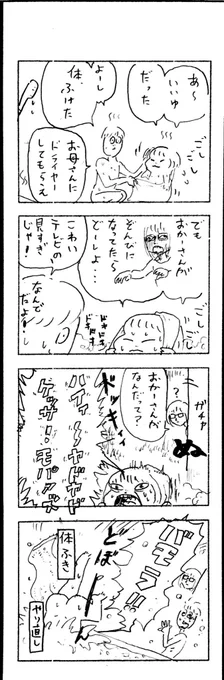 あ〜
いいゆ
だった
よーし
体ふけた
お母さんに
ドライヤー
してもらえ
ごし
ごし
でも
おかーさんが
ぞんびに
なってたら
どーしよ・・
こわい
テレビの
見すぎ
じゃ!
なんで
だよ
ごし
ごし
ドキ
ドキ
ドキ
ガチャ
?
ぬ
おかーさんが
なんだって?
ドッキィ
ゲッサー・モパッズ
バモラ!!!
どぼ
体ふき
やり直し